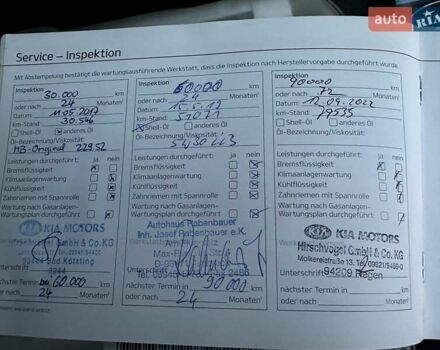 auto
KIA
Service – Inspektion
Mit Abstempelung bestätigt die wartungsausführende Werkstatt, dass die Inspektion nach Herstellervorgabe durchgeführt wurde.
Inspektion
30.000 km
oder nach 24 Monaten
Datum: 11.05.2017
km-Stand: 30.546
Shell-Öl anderes Öl
Öl-Bezeichnung/Viskosität:
MB-Original 229.52
Leistungen durchgeführt: ja nein
Bremsflüssigkeit
Klimaanlagenwartung
Kühlflüssigkeit
Zahnriemen mit Spannrolle
Wartung nach Gasanlagen-
Wartungsplan durchgeführt
KIA MOTORS
Hirschvogel GmbH & Co.KG
Bad Kötzting
nächster Termin bei 60.000 km
oder nach 24 Monaten
Inspektion
60000 km
oder nach 24 Monaten
Datum:
km-Stand: 51071
Shell-Öl anderes Öl
Öl-Bezeichnung/Viskosität:
Leistungen durchgeführt: ja nein
Bremsflüssigkeit
Klimaanlagenwartung
Kühlflüssigkeit
Zahnriemen mit Spannrolle
Wartung nach Gasanlagen-
Wartungsplan durchgeführt
Autohaus Rabenbauer
Inh. Josef Rabenbauer e.K.
nächster Termin bei 90000 km
oder nach 24 Monaten
Inspektion
90000 km
oder nach 72 Monaten
Datum: 12.09.2022
km-Stand: 79535
Shell-Öl anderes Öl
Öl-Bezeichnung/Viskosität:
Leistungen durchgeführt: ja nein
Bremsflüssigkeit
Klimaanlagenwartung
Kühlflüssigkeit
Zahnriemen mit Spannrolle
Wartung nach Gasanlagen-
Wartungsplan durchgeführt
KIA MOTORS
Hirschvogel GmbH & Co.KG
Unterschrift 94209 Regen
nächster Termin bei km
oder nach Monaten